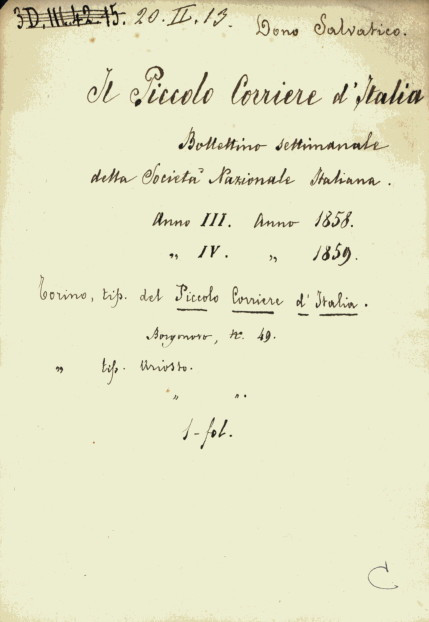 3 D. III. 42. 15. 20. II. 13. Dono Salvatico.
Il Piccolo Corriere d'Italia
Bollettino settimanale
della Società Nazionale Italiana.
Anno III. Anno 1858.
„ IV. „ 1859.
Torino, tip. del Piccolo Corriere d'Italia.
Borgonovo, n. 49.
„ tip. Arioste.
„ „.
1-fol.
C